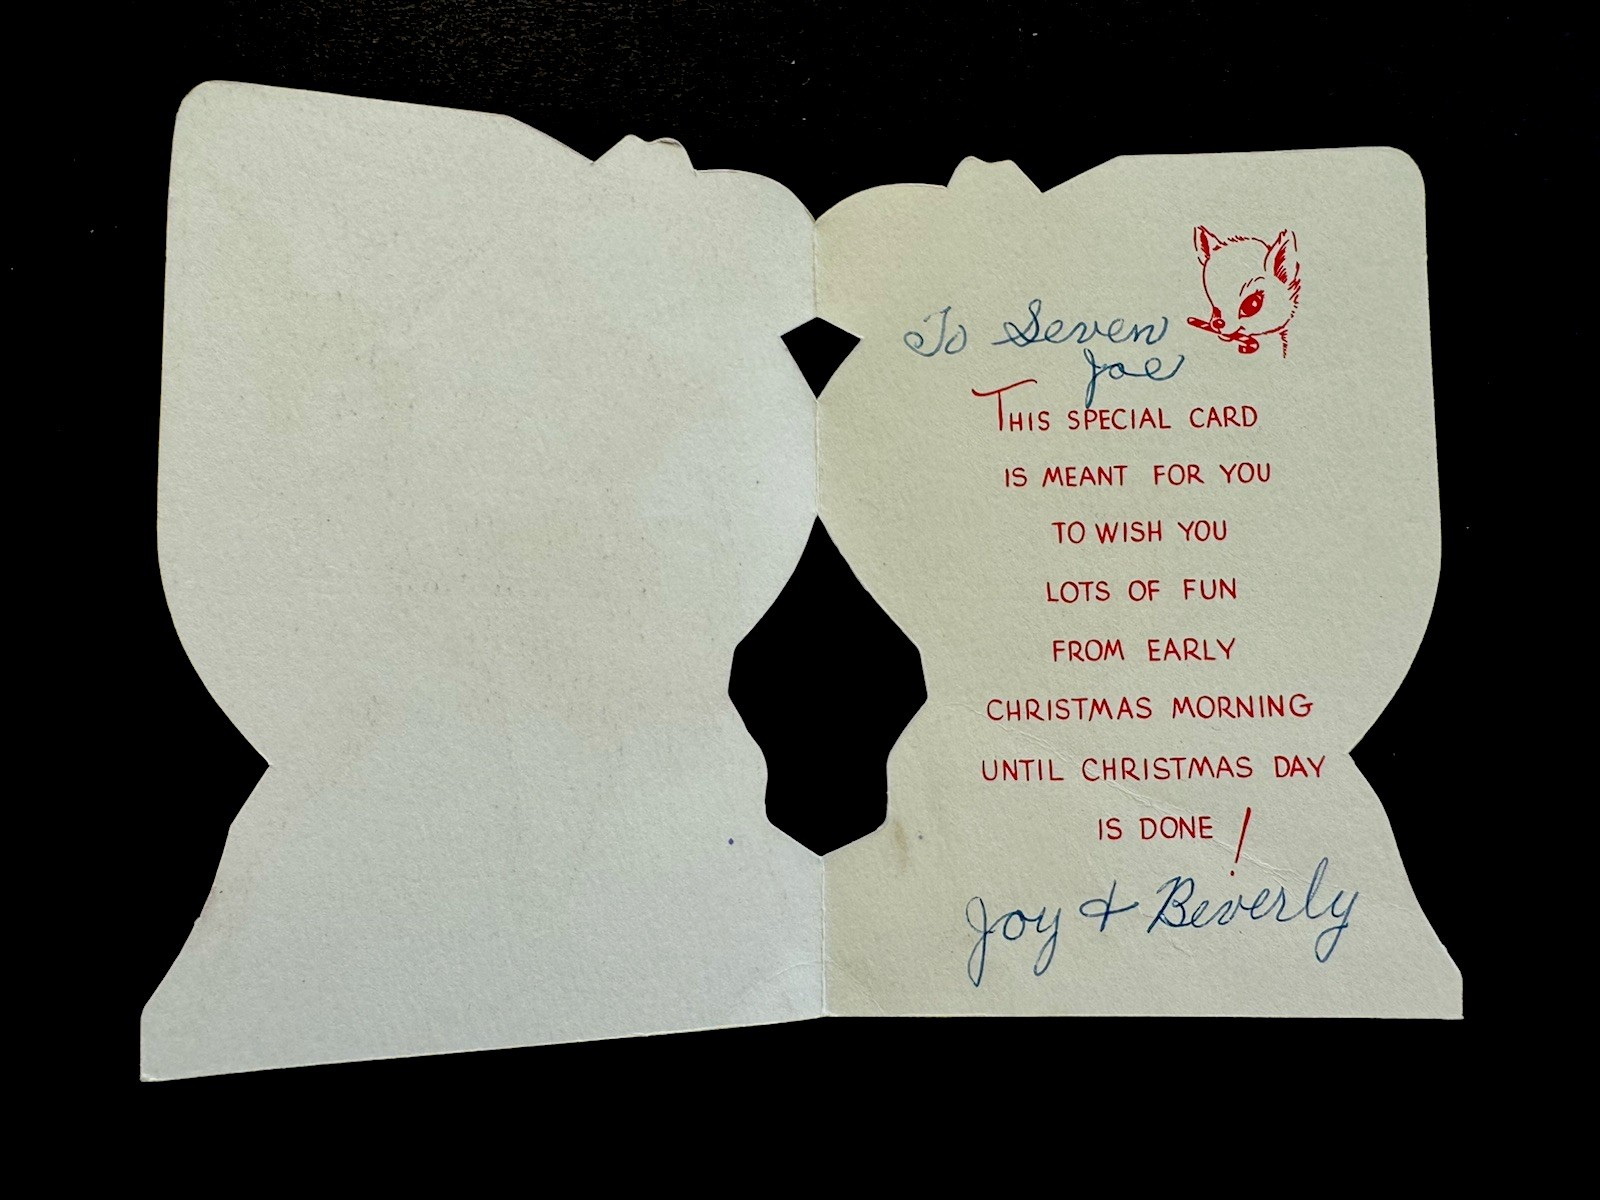 To Seven
Joe
THIS SPECIAL CARD
IS MEANT FOR YOU
TO WISH YOU
LOTS OF FUN
FROM EARLY
CHRISTMAS MORNING
UNTIL CHRISTMAS DAY
IS DONE!
Joy + Beverly